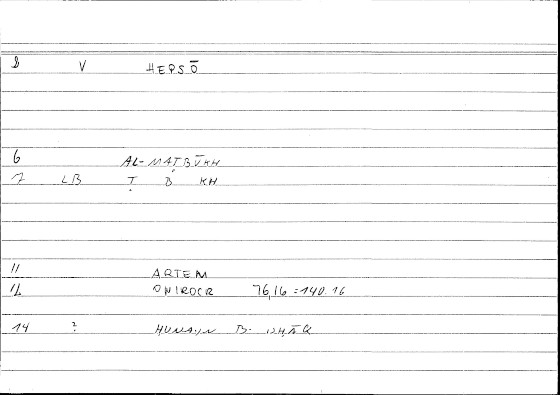 8 V HEPSŌ
6 AL-MAṬBŪKH
7 LB Ṭ B KH
11 ARTEM
12 ONIROCR 76,16 = 140.16
14 ? ḤUNAYN B. ISḤĀQ